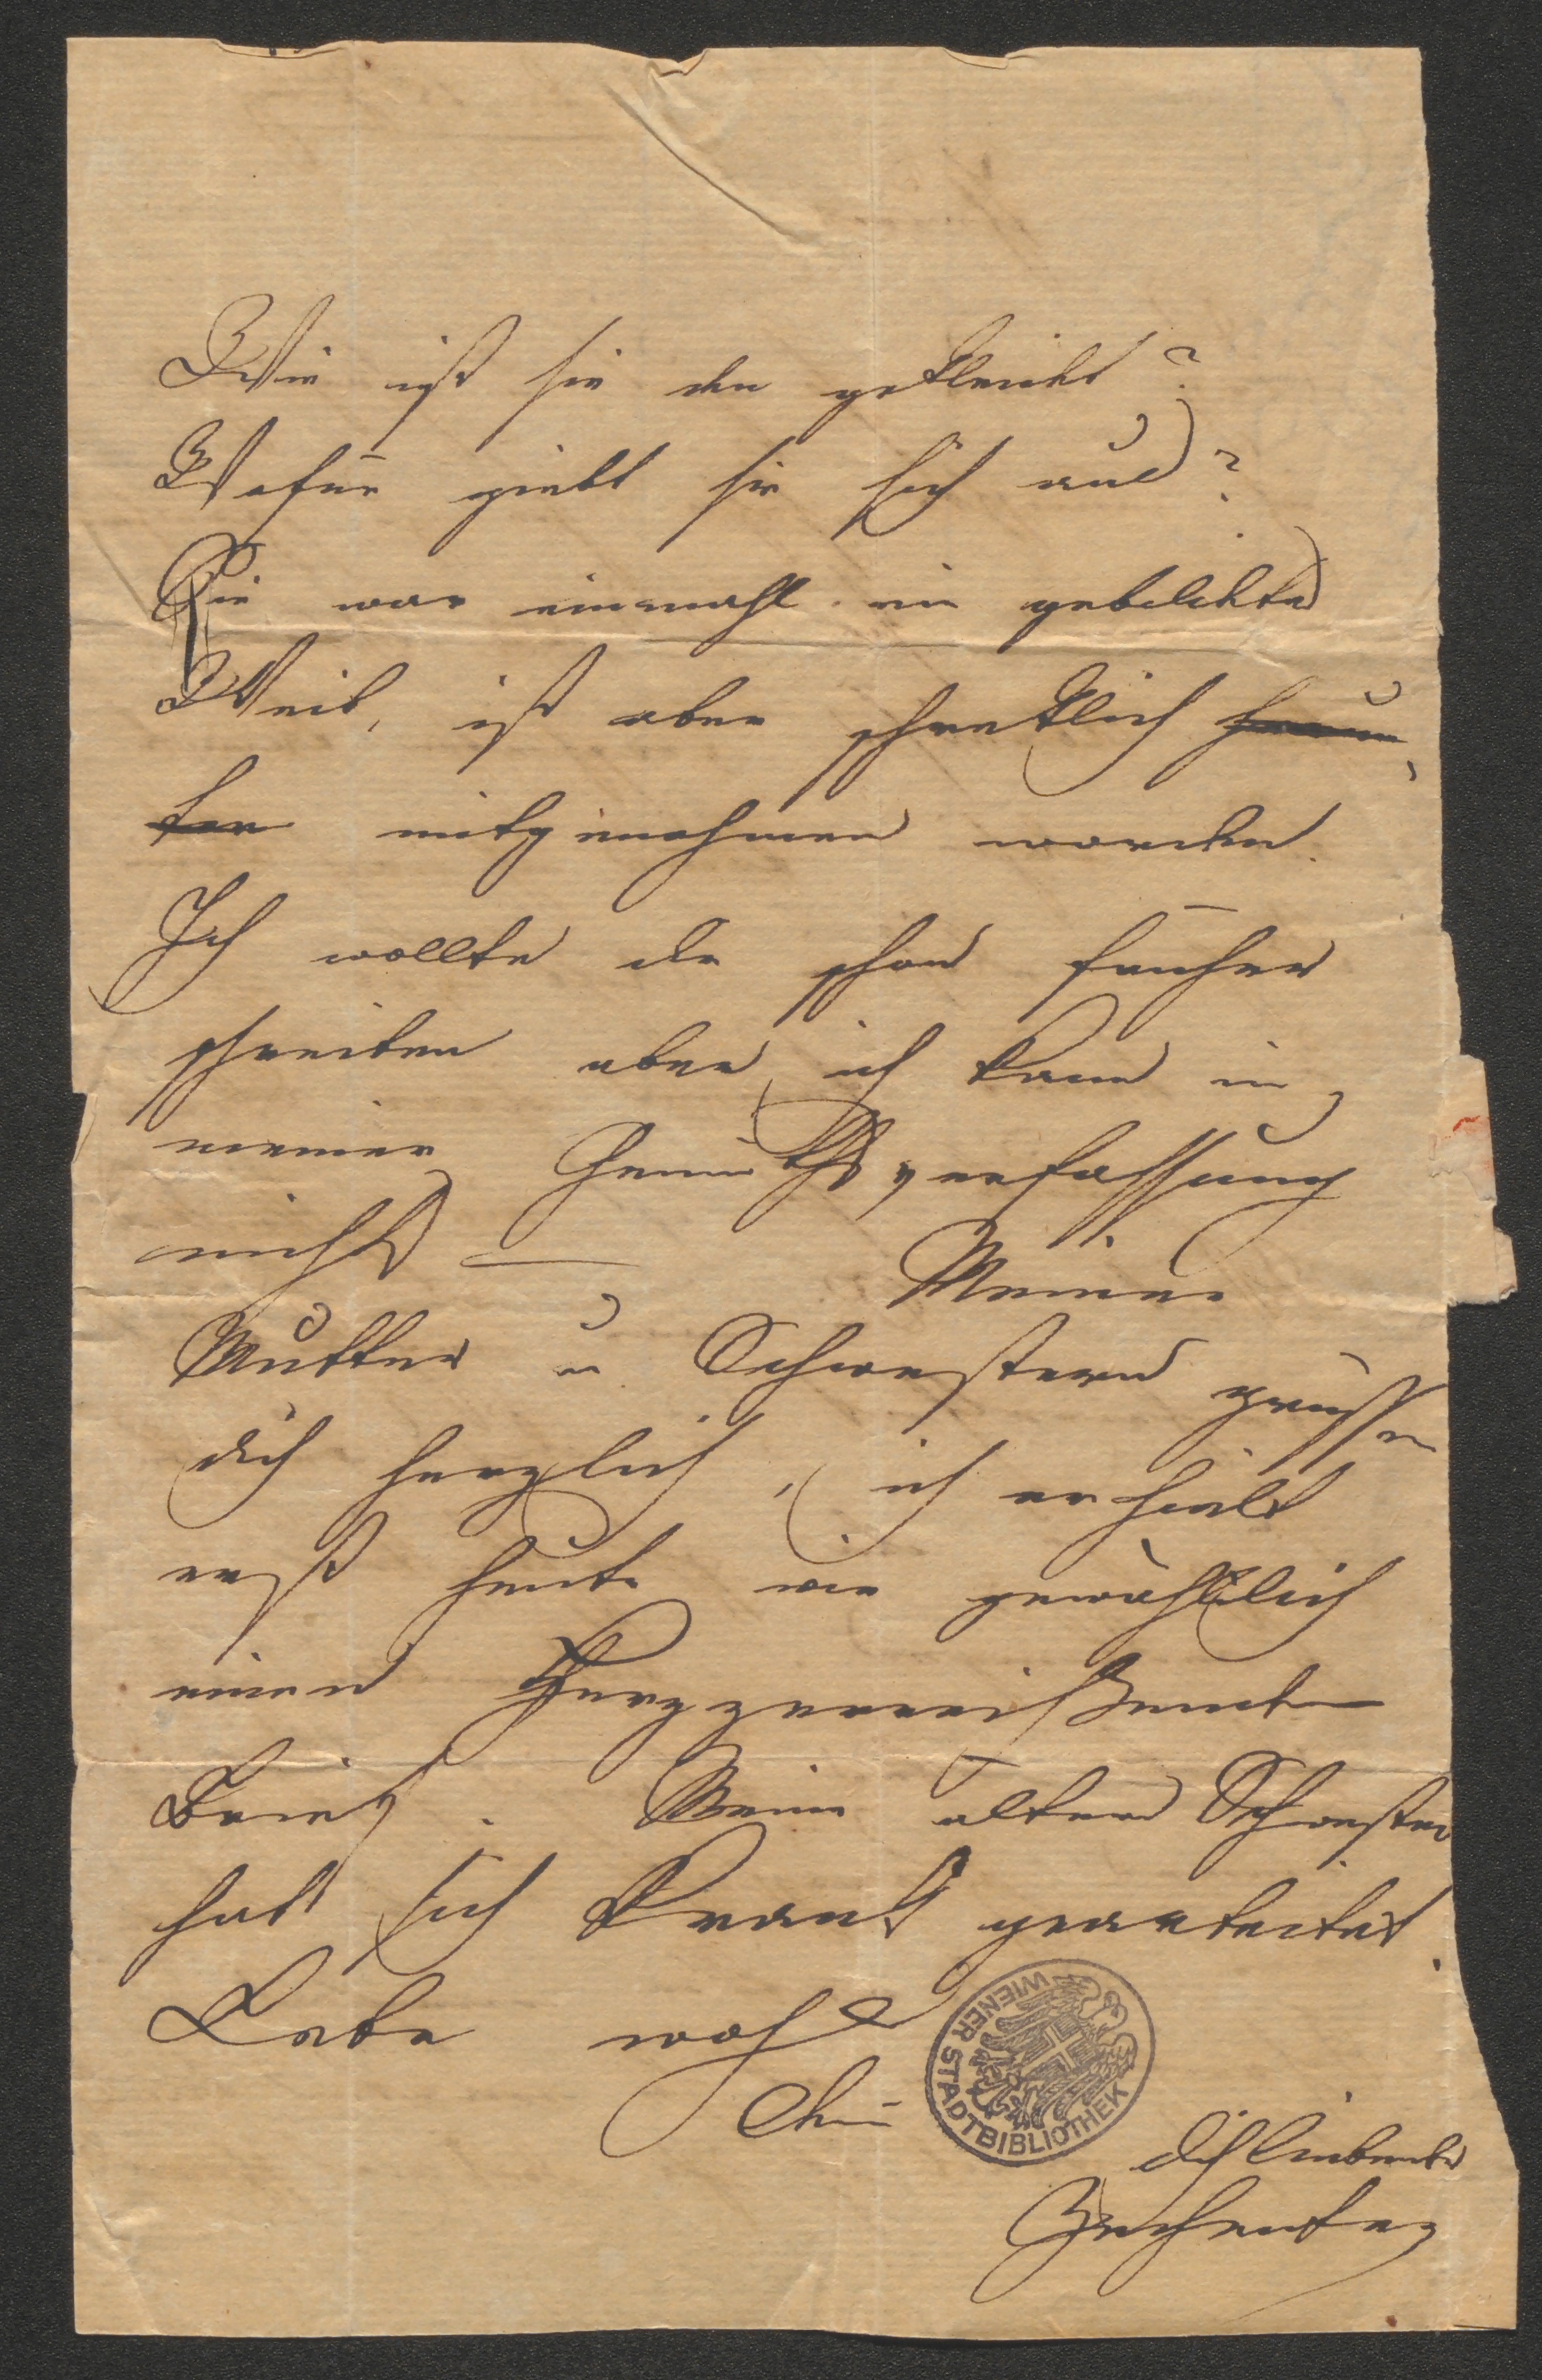 Wie ist sie den gekleidet?
Wofür giebt sie sich aus?
Sie war einmahl ein gebildetes
Weib, ist aber schrecklich herun
ter mitgenohmen worden.
Ich wollte dir schon früher
schreiben aber ich kann in
meiner Gemüthsverfassung
nicht — Meine
Mutter u. Schwestern grüssen
dich herzlich, ich erhielt
erst heute wie gewöhnlich
einen Herzzerreißenden
Brief. Meine ältere Schwester
hat sich krank gearbeitet.
Lebe wohl
Dein
dichliebender
WIENER STADTBIBLIOTHEK